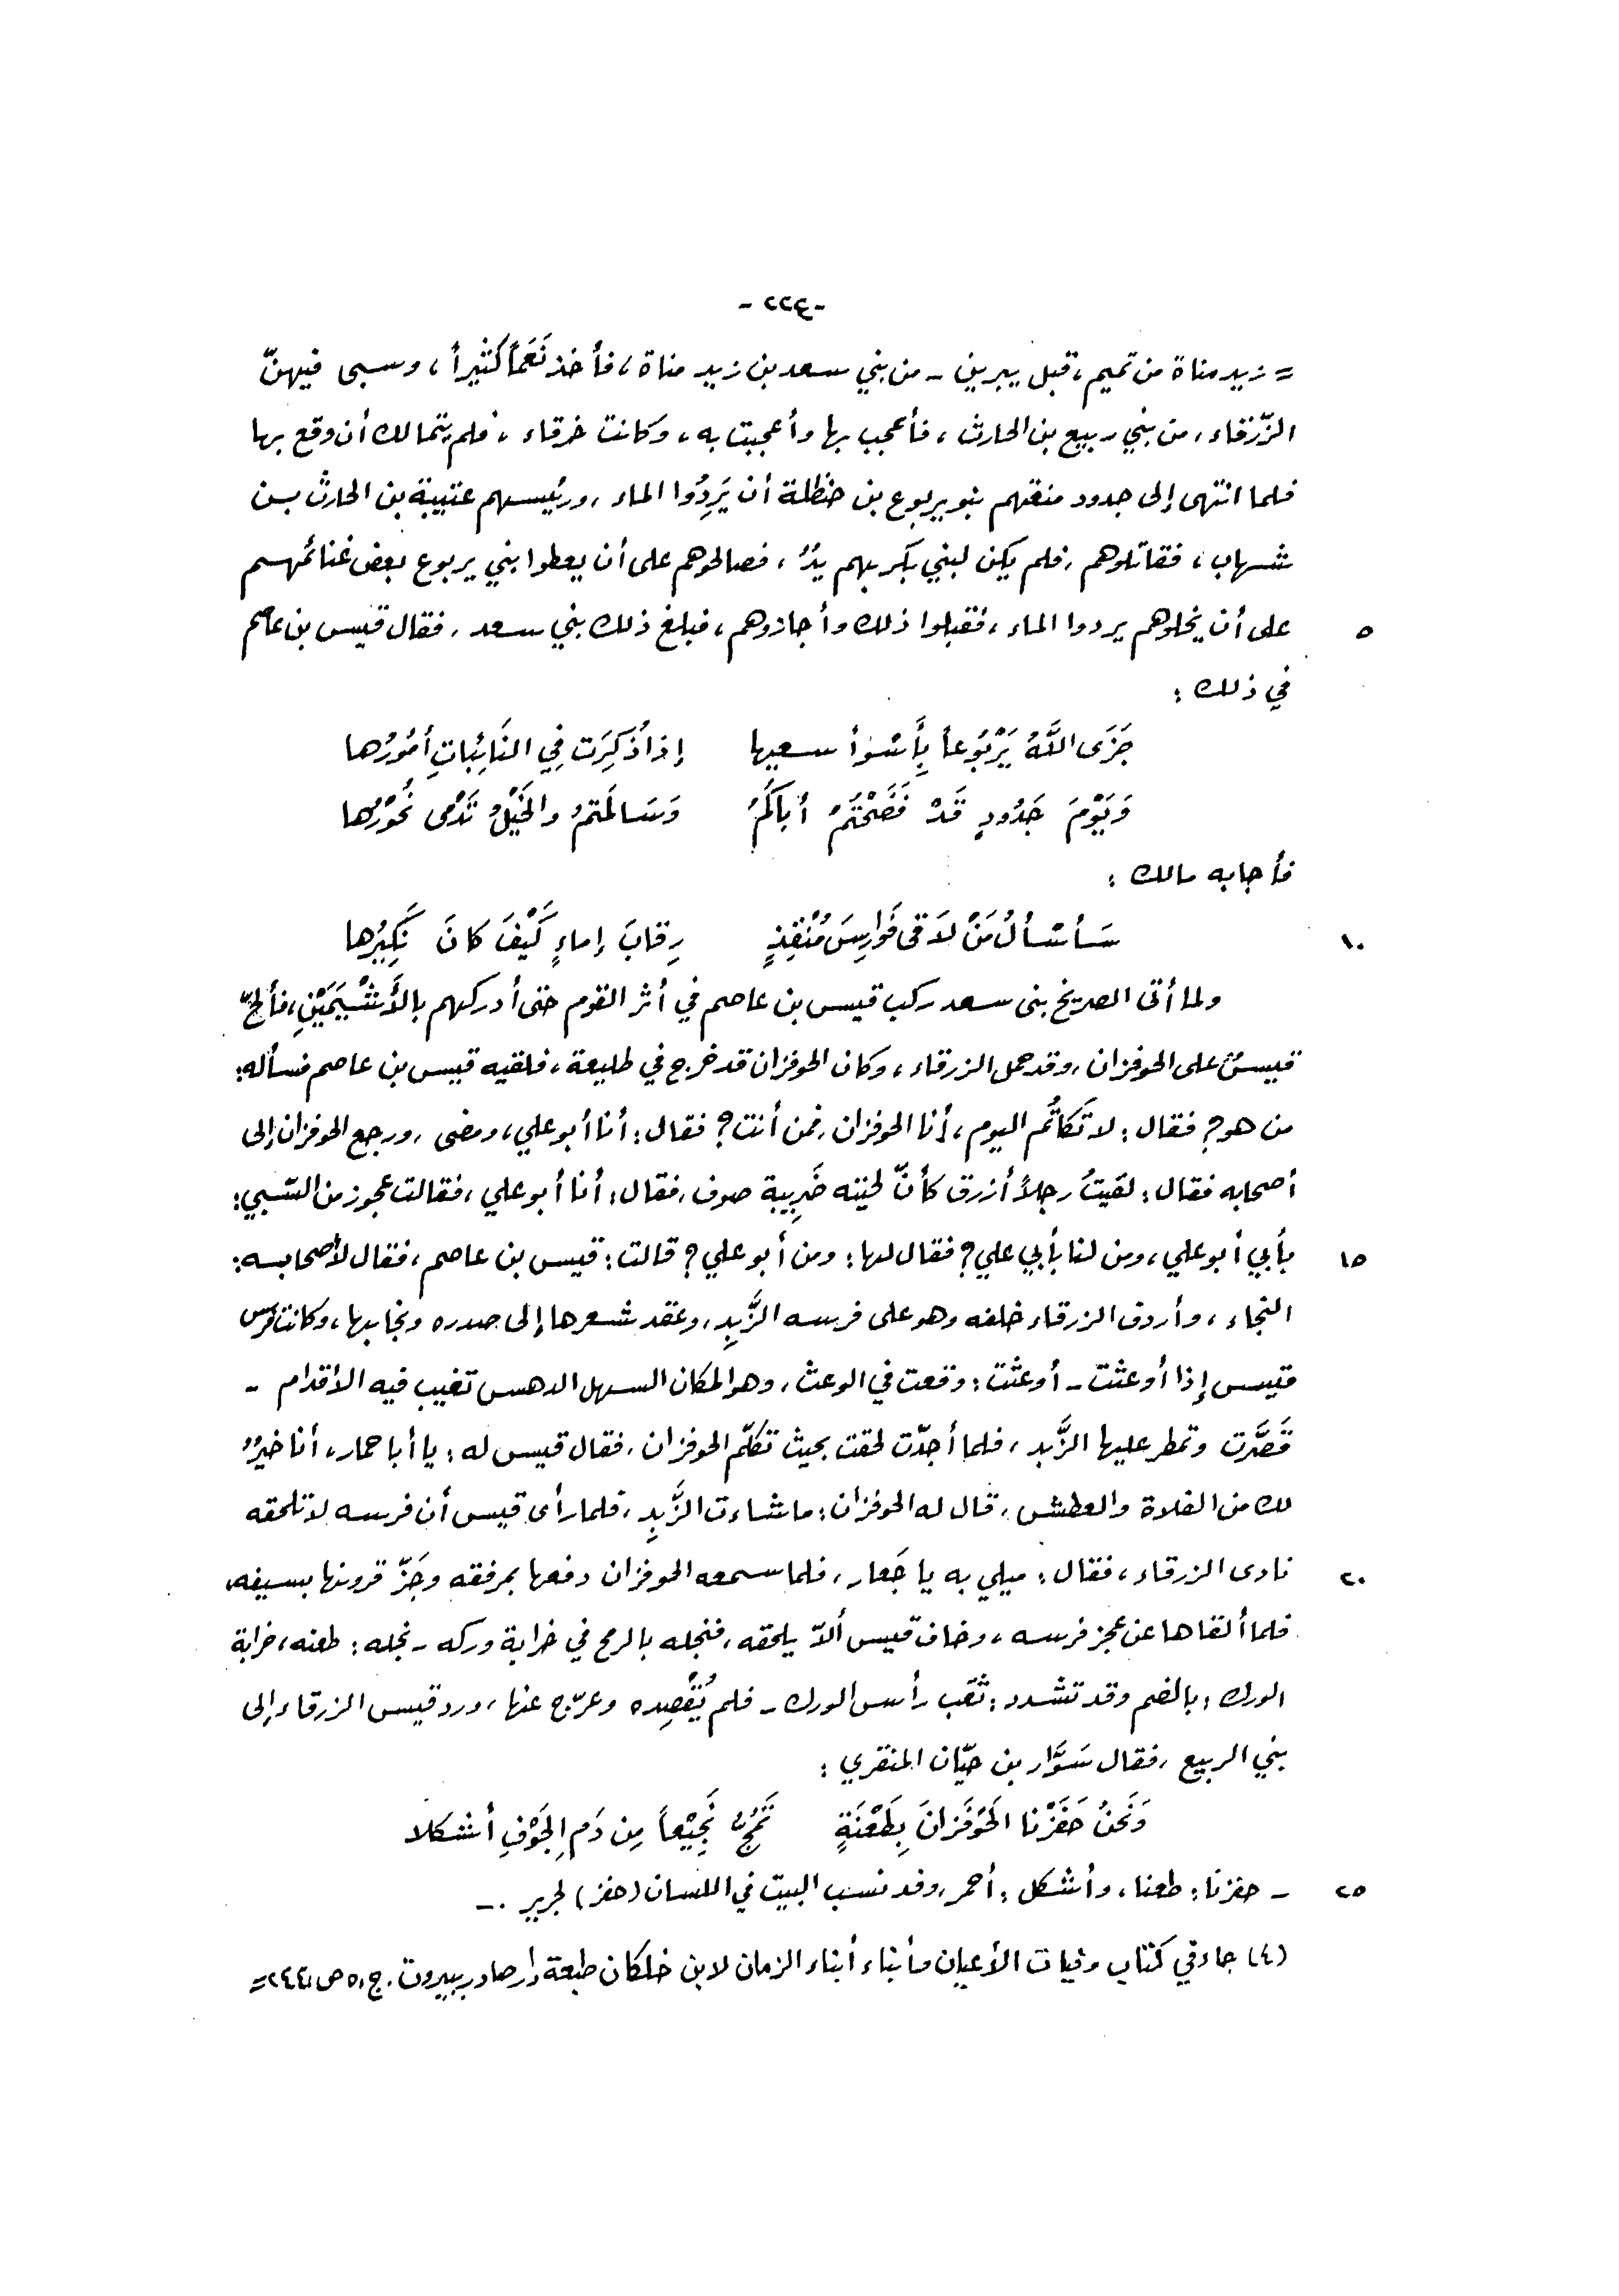 -٢٢٤-
= زيد مناة من تميم، قبل يبرين - من بني سعد بن زيد مناة، فأخذ نَعَماً كثيراً، وسبى فيهنّ
الزّرقاء، من بني ربيع بن الحارث، فأعجب بها وأعجبت به، وكانت خرقاء، فلم يتمالك أن وقع بها
فلما انتهى إلى جدود منعتهم بنو يربوع بن حنظلة أن يَرِدُوا الماء، ورئيسهم عتيبة بن الحارث بن
شهاب، فقاتلوهم، فلم يكن لبني بكر بهم يدٌ، فصالحوهم على أن يعطوا بني يربوع بعض غنائمهم
٥ على أن يخلوهم يردوا الماء، فقبلوا ذلك وأجازوهم، فبلغ ذلك بني سعد، فقال قيس بن عاصم
في ذلك :
جَزَى اللَّهُ يَرْبُوعاً بِأَسْوَأ سعيها إذا ذُكِرَت فِي النَائِبَاتِ أمُورُها
وَيَوْمَ جَدُودٍ قَدْ فَضَحْتُمْ أباكُمُ وَسَالَمْتمُ والخَيْلُ تَدْمى نُحُوْرُها
فأجابه مالك :
١٠ سَأسْألُ مَنْ لاَقى فَوَارِسَ مُنْقِذٍ رِقابَ إماءٍ كَيْفَ كانَ نَكِيْرُها
ولما أتى الصريخ بنى سعد ركب قيس بن عاصم في أثر القوم حتى أدركهم بالأَشْيَمَيْنِ، فألحّ
قيسٌ على الحوفزان، وقد حمل الزرقاء، وكان الحوفزان قد خرج في طليعة، فلقيه قيس بن عاصم فسأله:
من هو؟ فقال: لا تَكَاتُم اليوم، أنا الحوفزان، فمن أنت؟ فقال: أنا أبو علي، ومضى، ورجع الحوفزان إلى
أصحابه فقال: لقيتُ رجلاً أزرق كأنّ لحيته ضَرِيبة صوف، فقال: أنا أبو علي، فقالت عجوز من السّبي:
١٥ بأبي أبو علي، ومن لنا بأبي علي؟ فقال لها: ومن أبو علي؟ قالت: قيس بن عاصم، فقال لأصحابه:
النجاء، وأردف الزرقاء خلفه وهو على فرسه الزَّبِدِ، وعقد شعرها إلى صدره ونجا بها، وكانت فرس
قيس إذا أوعثت - أوعثت: وقعت في الوعث، وهو المكان السهل الدهس تغيب فيه الأقدام -
قَصَّرت وتمطر عليها الزَّبد، فلما أجدّت لحقت بحيث تكلّم الحوفزان، فقال قيس له: يا أبا حمار، أنا خيرٌ
لك من الفلاة والعطش، قال له الحوفزان: ما شاءت الزَّبِدِ، فلما رأى قيس أن فرسه لا تلحقه
٢٠ نادى الزرقاء، فقال: ميلي به يا جَعار، فلما سمعه الحوفزان دفعها بمرفقه وجَزّ قرونها بسيفه،
فلما ألقاها عن عجز فرسه، وخاف قيس ألاّ يلحقه، فنجله بالرمح في خرابة وركه - نجله: طعنه، خرابة
الورك: بالضم وقد تشدد: ثقب رأس الورك - فلم يُقْصِده وعرّج عنها، ورد قيس الزرقاء إلى
بني الربيع، فقال سَوَّار بن حيّان المنقري :
وَنَحْنُ حَفَزْنا الحَوْفَزانَ بِطَعْنَةٍ تَمُجُّ نَجِيْعاً مِن دَمِ الجَوْفِ أشكلا
٢٥ - حفزنا: طعنا، وأشكل: أحمر، وقد نسب البيت في اللسان (حفز) لجرير . -
(٤) جاء في كتاب وفيات الأعيان وأنباء أبناء الزمان لابن خلكان طبعة دار صادر ببيروت. ج: ٥ ص: ٢٤٤ =